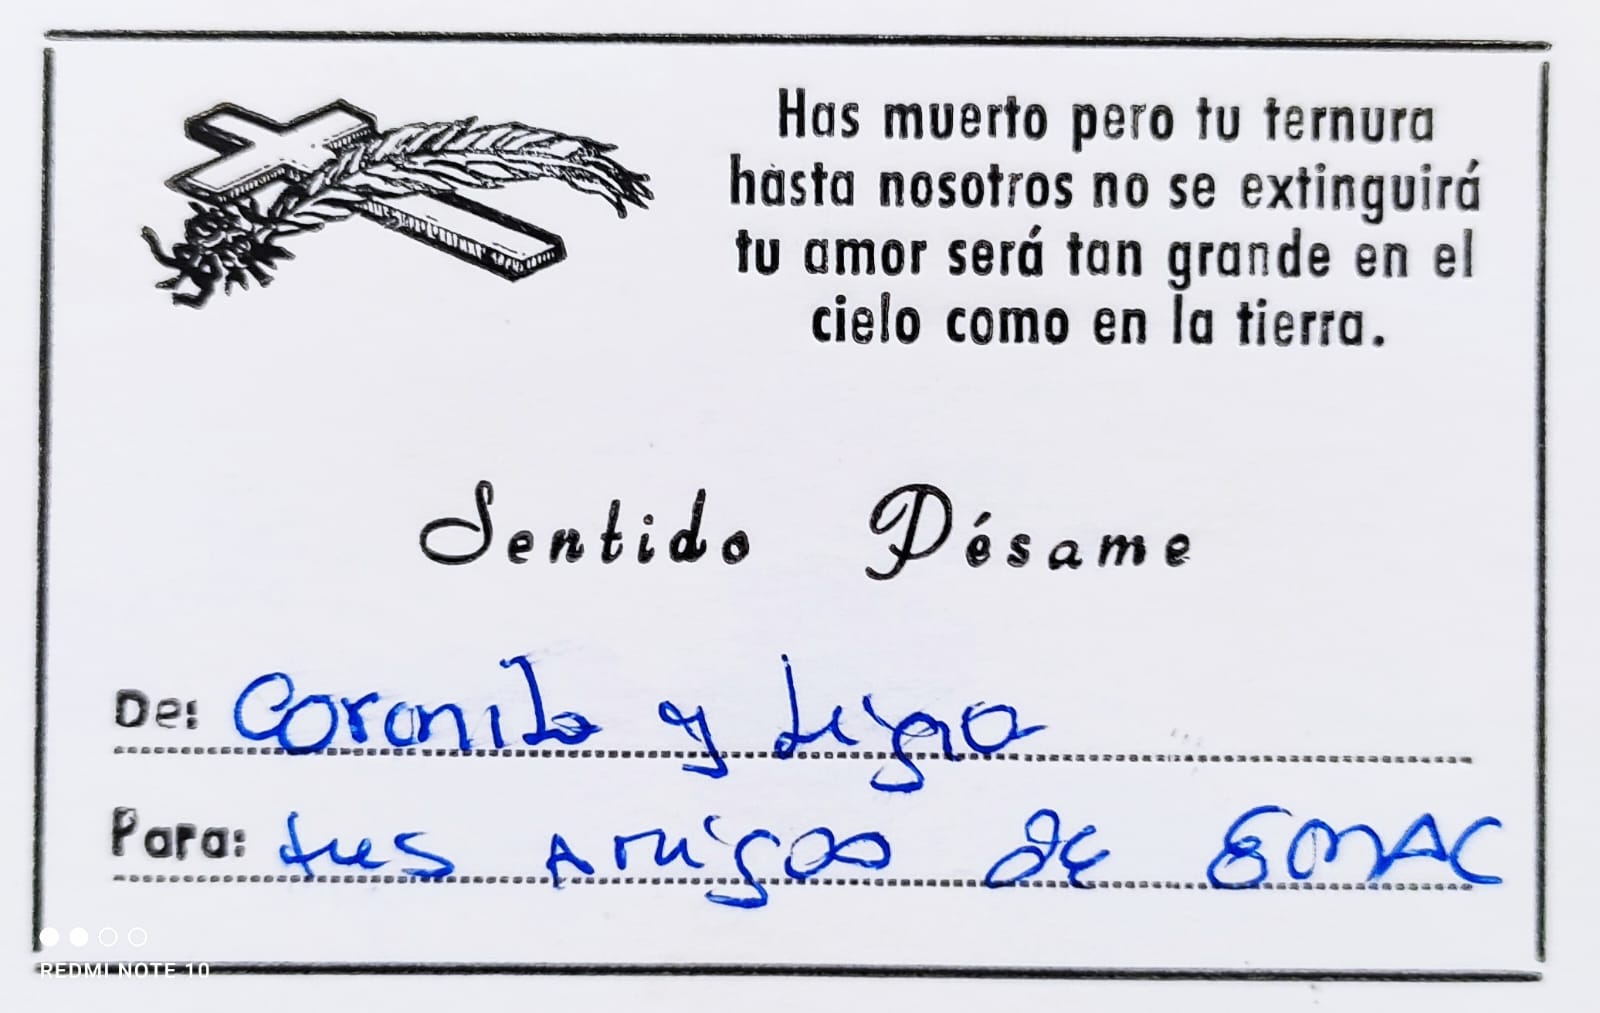 Has muerto pero tu ternura
hasta nosotros no se extinguirá
tu amor será tan grande en el
cielo como en la tierra.
Sentido Pésame
De: Coronita y Ligia
Para: tus Amigos de EMAC
REDMI NOTE 10